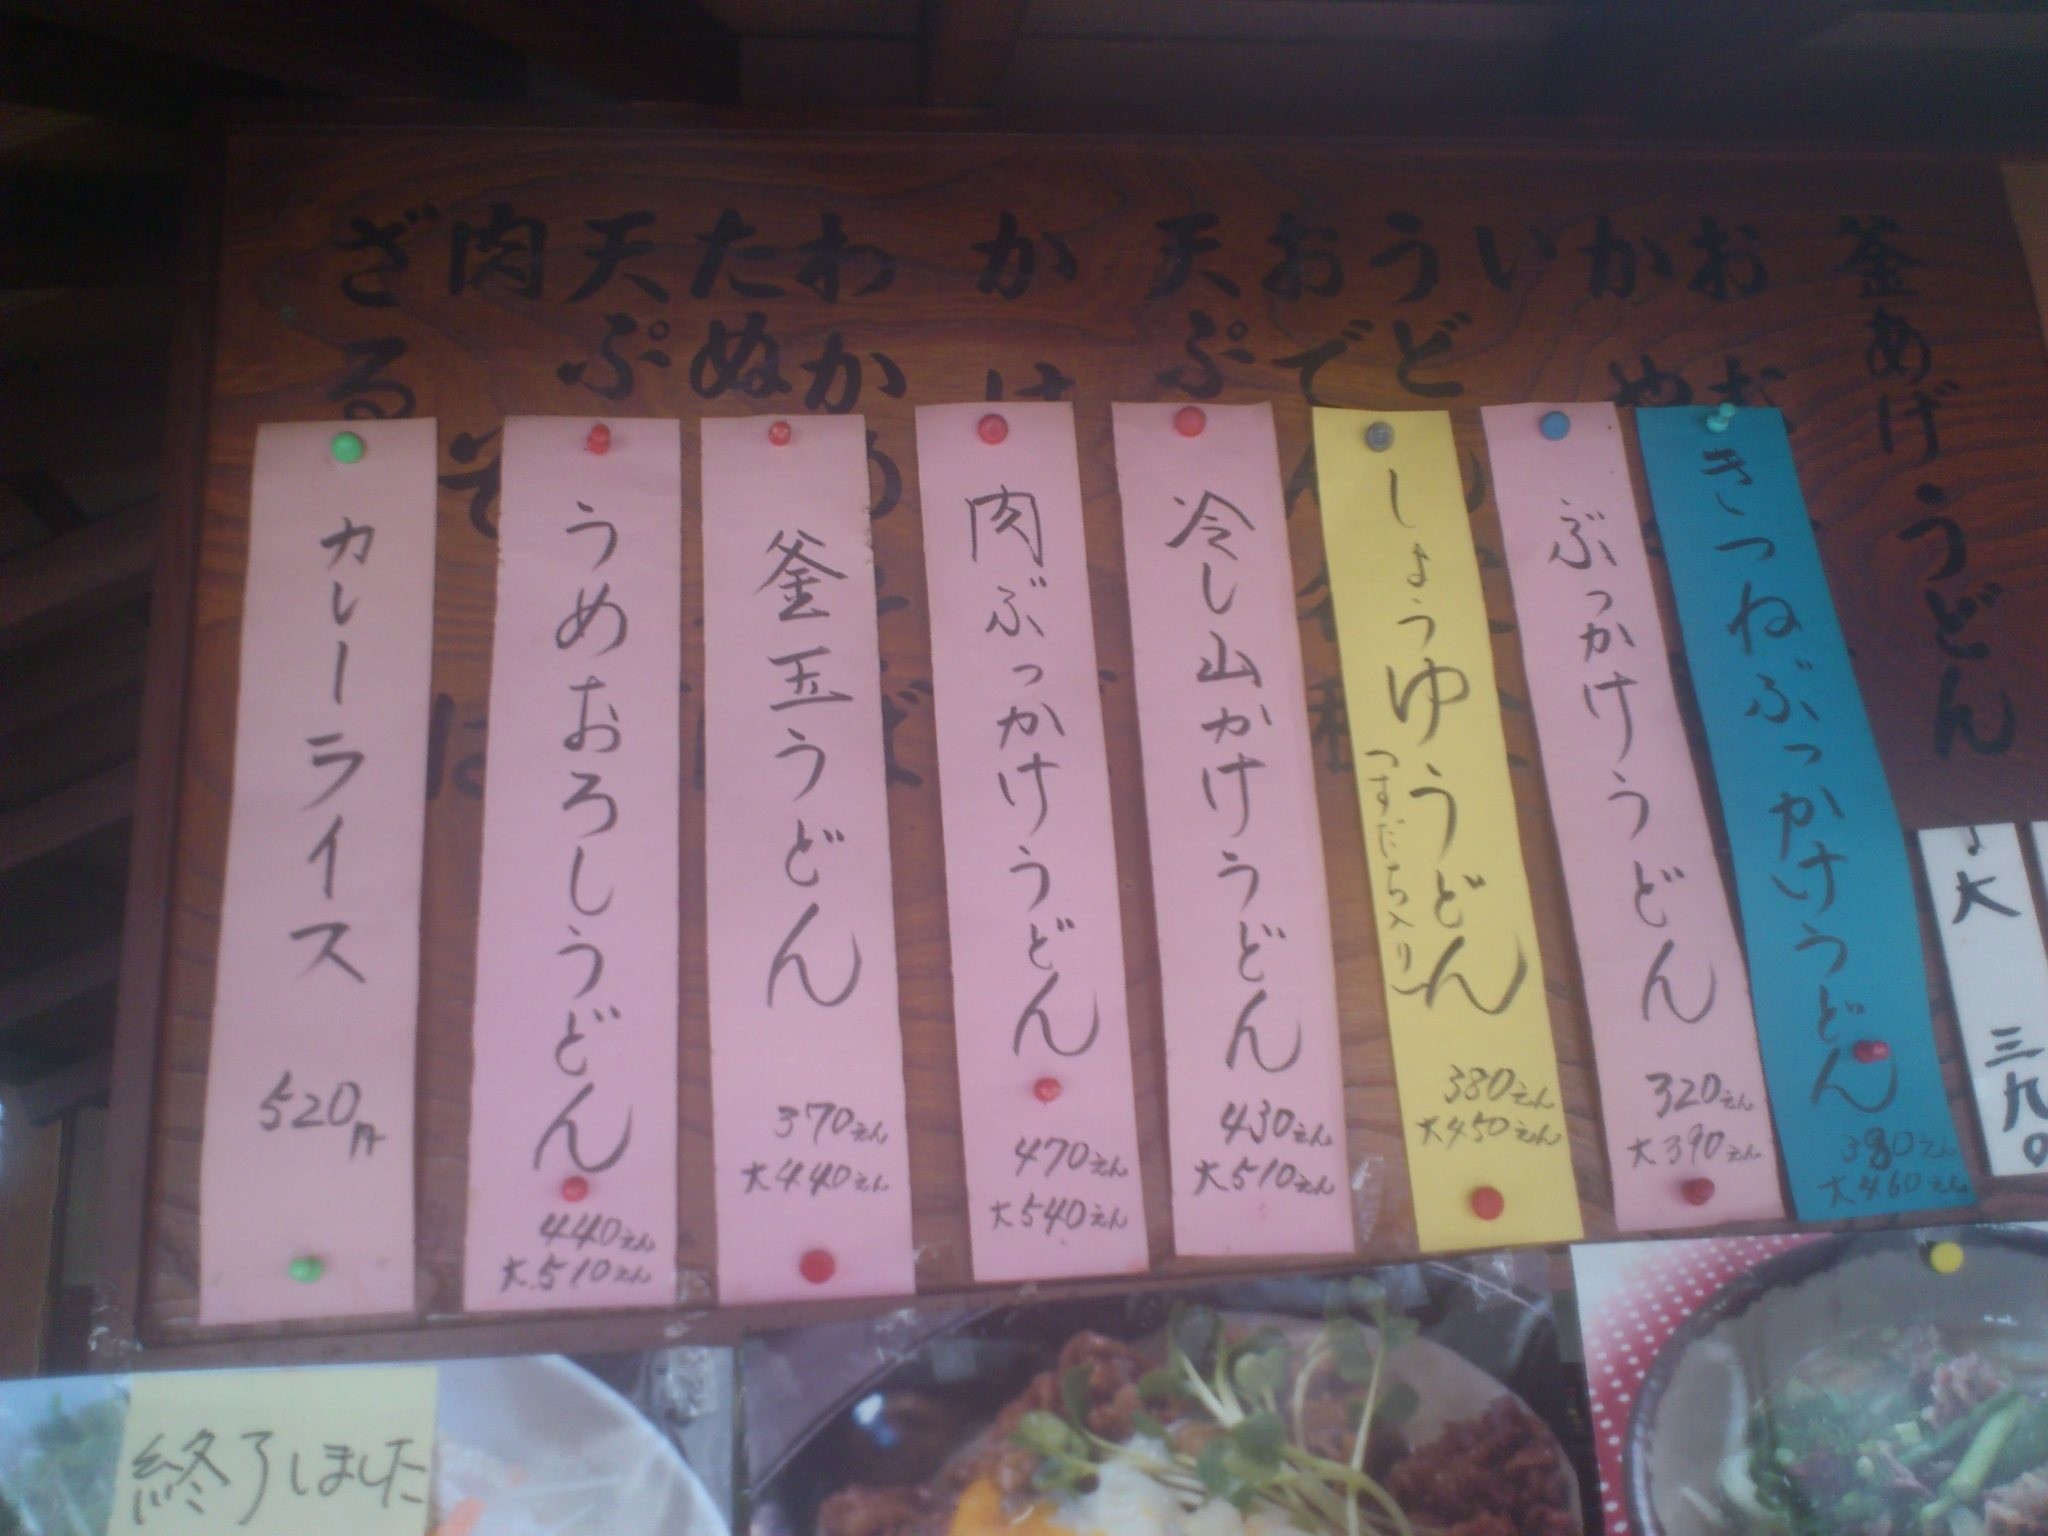 釜あげうどん
きつねぶっかけうどん
380えん
大460えん
ぶっかけうどん
320えん
大390えん
しょうゆうどん
(すだち入り)
380えん
大450えん
冷し山かけうどん
430えん
大510えん
肉ぶっかけうどん
470えん
大540えん
釜玉うどん
370えん
大440えん
うめおろしうどん
440えん
大510えん
カレーライス
520円
大 三九〇
終了しました